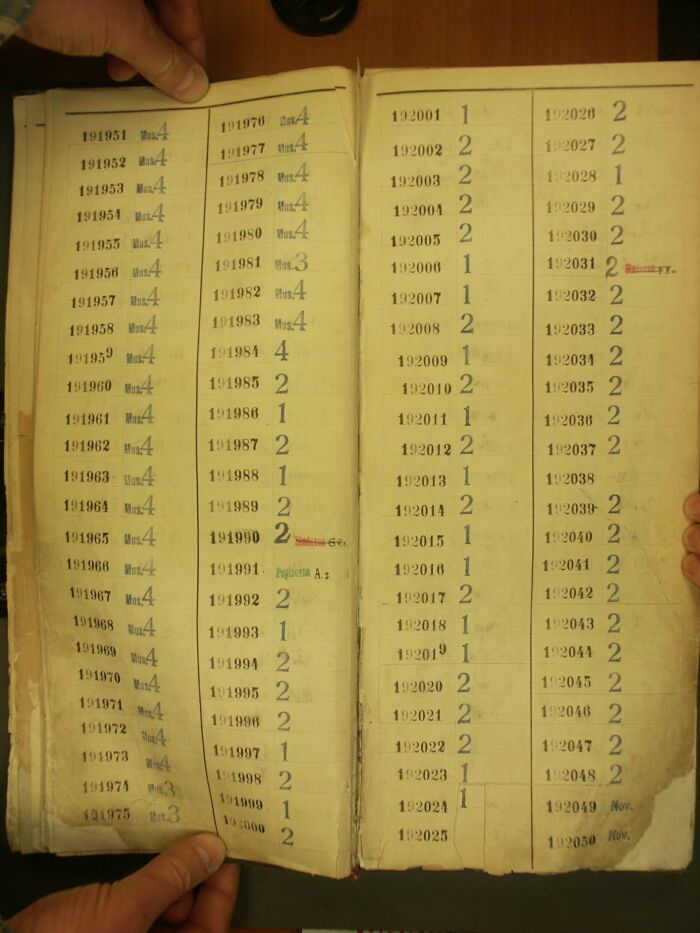 191951 Mus.4
191952 Mus.4
191953 Mus.4
191954 Mus.4
191955 Mus.4
191956 Mus.4
191957 Mus.4
191958 Mus.4
191959 Mus.4
191960 Mus.4
191961 Mus.4
191962 Mus.4
191963 Mus.4
191964 Mus.4
191965 Mus.4
191966 Mus.4
191967 Mus.4
191968 Mus.4
191969 Mus.4
191970 Mus.4
191971 Mus.4
191972 Mus.4
191973 Mus.4
191974 Mus.3
191975 Mus.3
191976 Mus.4
191977 Mus.4
191978 Mus.4
191979 Mus.4
191980 Mus.4
191981 Mus.3
191982 Mus.4
191983 Mus.4
191984 4
191985 2
191986 1
191987 2
191988 1
191989 2
191990 2 G.
191991 Poplsovna A.
191992 2
191993 1
191994 2
191995 2
191996 2
191997 1
191998 2
191999 1
192000 2
192001 1
192002 2
192003 2
192004 2
192005 2
192006 1
192007 1
192008 2
192009 1
192010 2
192011 1
192012 2
192013 1
192014 2
192015 1
192016 1
192017 2
192018 1
192019 1
192020 2
192021 2
192022 2
192023 1
192024 1
192025
192026 2
192027 2
192028 1
192029 2
192030 2
192031 2
192032 2
192033 2
192034 2
192035 2
192036 2
192037 2
192038
192039 2
192040 2
192041 2
192042 2
192043 2
192044 2
192045 2
192046 2
192047 2
192048 2
192049 Nov.
192050 Nov.